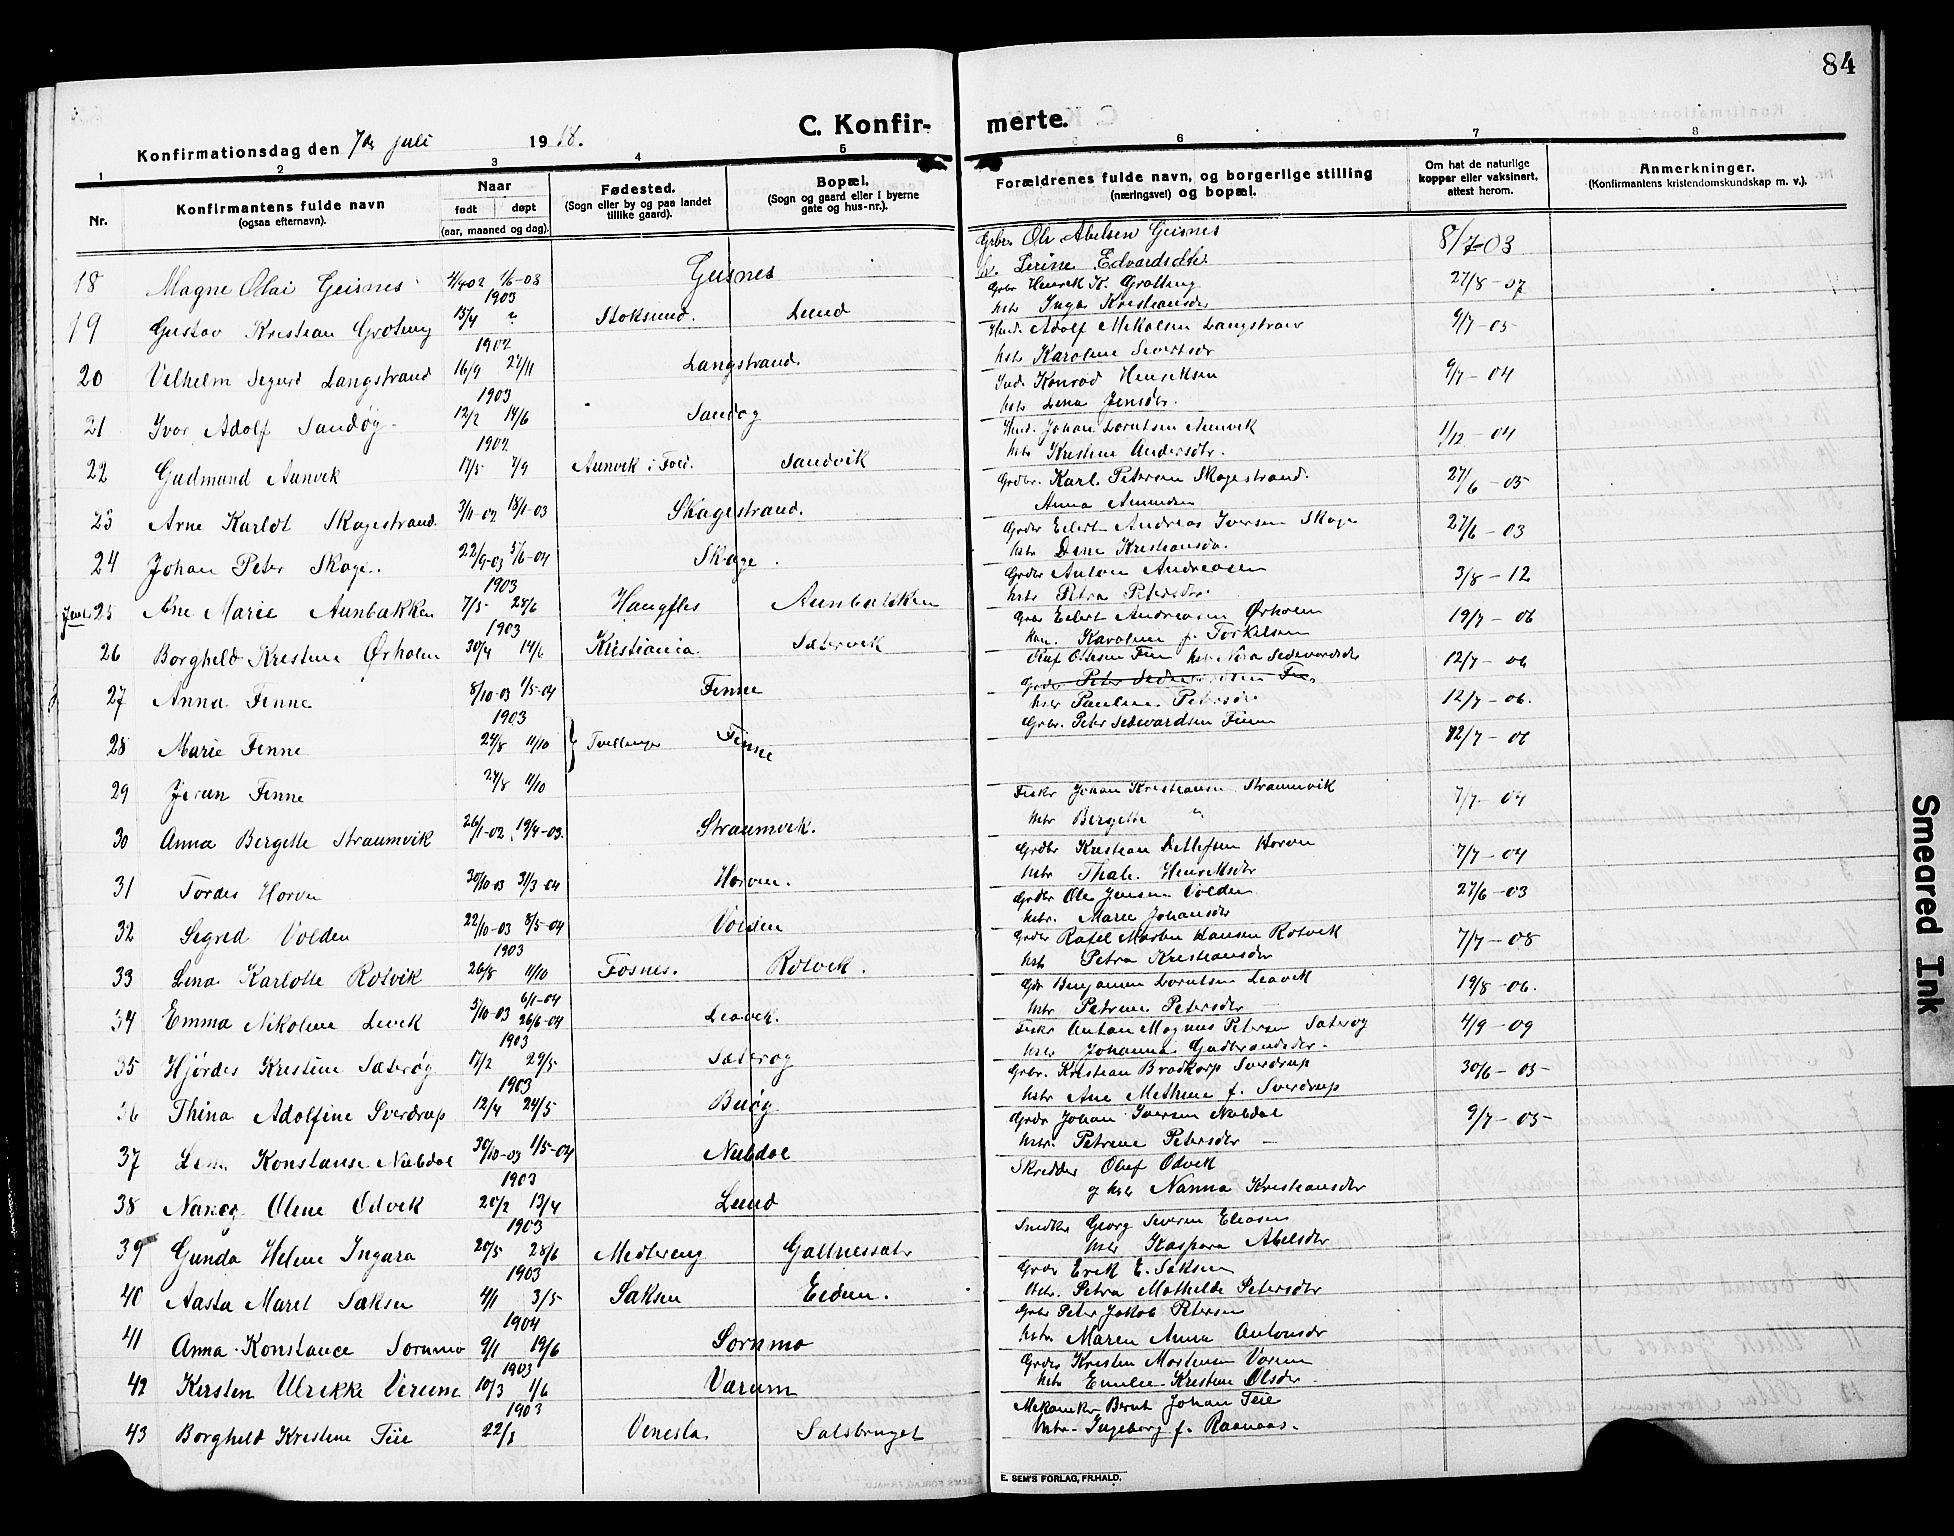 84
C. Konfir- merte.
Konfirmationsdag den 7de juli 1918.
1 2 3 4 5 6 7 8
Nr.
Konfirmantens fulde navn
(ogsaa efternavn).
Naar
født døpt
(aar, maaned og dag).
Fødested.
(Sogn eller by og paa landet
tillike gaard).
Bopæl.
(Sogn og gaard eller i byerne
gate og hus-nr.).
Forældrenes fulde navn, og borgerlige stilling
(næringsvei) og bopæl.
Om hat de naturlige
kopper eller vaksinert,
attest herom.
Anmerkninger.
(Konfirmantens kristendomskundskap m. v.).
18 Magne Olai Geisnes Geisnes Ole Abelsen Geisnes 8/7-03
Serine Edvardsdtr
1903
19 Gustav Kristian Grøtting 13/4 Stoksund. Lund Grbr Henrik K. Grøtting 27/8-07
hstr Inga Kristiansdr
1902
20 Vilhelm Sigurd Langstrand 16/9 27/11 Langstrand. Adolf Mikalsen Langstrand 9/7-05
hstr Karoline Sivertsdr
1903
21 Ivar Adolf Sandøy 12/2 14/6 Sandøy Ind. Konrad Henriksen 9/7-04
hstr Lena Jensdtr.
1902
22 Gudmund Aunvik 17/5 7/9 Aunvik i Fold. Sandvik Johan Lorntsen Aunvik 1/12-04
hstr Kristine Andersdtr.
23 Arne Karldt Skagestrand. 3/11-02 18/1-03 Skagestrand. Grdbr. Karl Petersen Skagestrand. 27/6-05
Anna Amundsen
24 Johan Peter Skage. 22/9-03 5/6-04 Skage. Grdbr Eilert Andreas Iversen Skage 27/6-03
hstr Dina Kristiansdr.
1903
25 Ane Marie Aunbakken 7/5 28/6 Haugfles Aunbakken Grdbr Anton Andreasen 3/8-12
hstr Petra Petersdtr.
1903
26 Borghild Kristine Ørholm 30/4 14/6 Kristiania. Sætervik Eilert Andreasen Ørholm 19/7-06
Karoline f. Torkilsen
27 Anna Finne 8/10-03 1/5-04 Finne Olaf Ottesen Finne 12/7-06
hstr Pauline Petersdr 12/7-06.
1903
28 Marie Finne 24/8 11/10 Tvillinger Finne Grbr. Peter Sedevardsen Finne 12/7-06
29 Jørun Finne 24/8 11/10
30 Anna Bergitte Straumvik 26/1-02 19/4-03. Straumvik. Fiskr Johan Kristiansen Straumvik 7/7-04
hstr Bergitte "
31 Tordis Horven 30/10-03 31/3-04 Horven. Grdbr Kristian Detlefsen Horven 7/7-04
hstr Thale Henriksdtr
32 Sigrid Volden 22/10-03 8/5-04 Volden Grdbr Ole Jensen Volden 27/6-03
hstr. Marie Johansdtr
1903
33 Lina Karlotte Rotvik 26/8 11/10 Fosnes. Rotvik. Grdbr Rafel Martin Hansen Rotvik 7/7-08
hstr Petra Kristiansdtr
34 Emma Nikoline Levik 5/10-03 6/1-04 26/6-04 Leavik. Benjamin Lorntsen Leavik 19/8-06.
hstr Petrine Petersdtr
1903
35 Hjørdis Kristine Sæterøy 17/2 29/5 Sæterøy Fiskr Anton Magnus Petersen Sæterøy 4/9-09
hstr Johanna Gudbrandsdtr.
1903
36 Thina Adolfine Sverdrup 12/4 24/5 Buøy Grbr. Kristian Brodkorp Sverdrup 30/6-05
hstr Ane Methine f. Sverdrup
37 Konstanse Nubdal 30/10-03 1/5-04 Nubdal Grdbr Johan Iversen Nubdal 9/7-05
hstr. Petrine Petersdtr
1903
38 Nancy Oline Odvik 20/2 13/4 Lund Skredder Oluf Odvik
og hstr Nanna Kristiansdtr
1903
39 Gunda Helene Ingara 20/5 28/6 Medtereng Georg Severin Eliasen
hstr Kaspara Abelsdtr
1903
40 Aasta Marel Saksen 4/1 3/5 Saksen Eidem. Grdbr Erik E. Saksen
hstr. Petra Mathilde Petersdtr
1904
41 Anna Konstance Sornmo 9/1 19/6 Sornmo Grbr Peter Jakob Petersen
hstr Maren Anna Antonsdr
1903
42 Kirsten Ulrikke Verume 10/3 1/6 Værum Grdbr Kristen Mortensen Værum
hstr Emilie Kristine Olsdtr
1903
43 Borghild Kristine Teie 22/1 Venesla Salsbruget Mekaniker Bernt Johan Teie
hstr. Ingeborg f. Raanaas.
E. SEM'S FORLAG, FR.HALD.
Smeared Ink